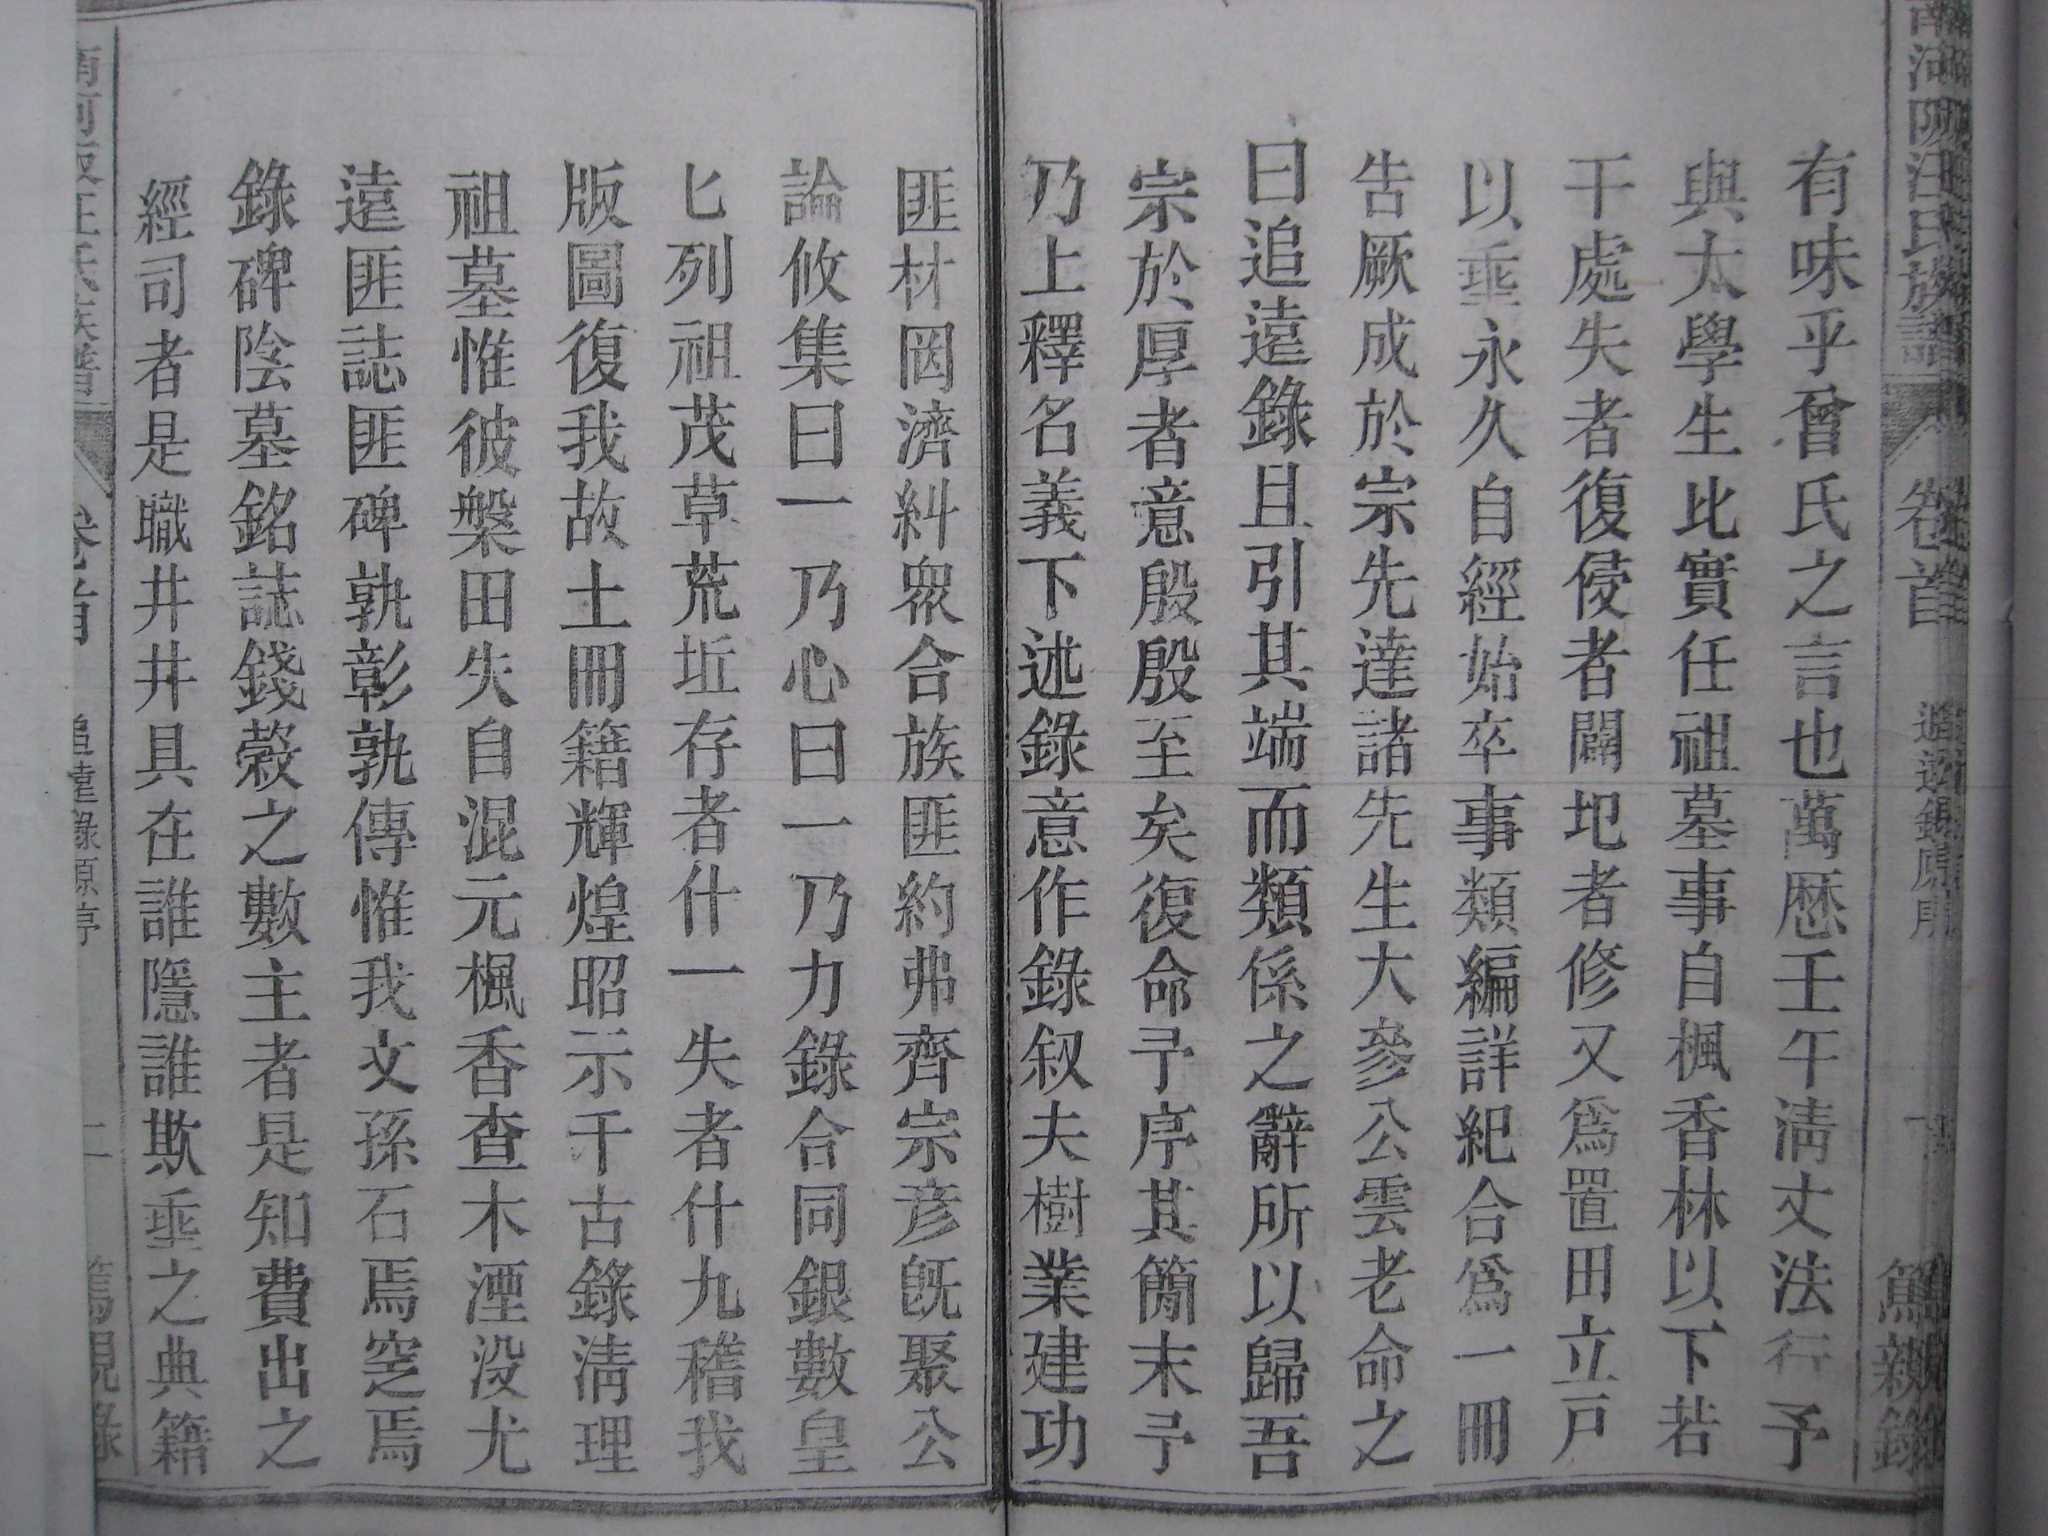 南河陂汪氏族譜 卷首 追遠錄原序 篤親錄
有味乎曾氏之言也萬歷壬午淸丈法行予
與太學生比實任祖墓事自楓香林以下若
干處失者復侵者闢圯者修又爲置田立戸
以埀永久自經始卒事類編詳紀合爲一冊
告厥成於宗先達諸先生大參公雲老命之
曰追遠錄且引其端而類係之辭所以歸吾
宗於厚者意殷殷至矣復命予序其簡末予
乃上釋名義下述錄意作錄叙夫樹業建功
匪材罔濟糾眾合族匪約弗齊宗彥旣聚公
論攸集曰一乃心曰一乃力錄合同銀數皇
匕列祖茂草荒坵存者什一失者什九稽我
版圖復我故土冊籍輝煌昭示千古錄淸理
祖墓惟彼槃田失自混元楓香查木湮没尤
遠匪誌匪碑孰彰孰傳惟我文孫石焉窆焉
錄碑陰墓銘誌錢穀之數主者是知費出之
經司者是職井井具在誰隱誰欺埀之典籍
卷首 追遠錄原序 二 篤親錄